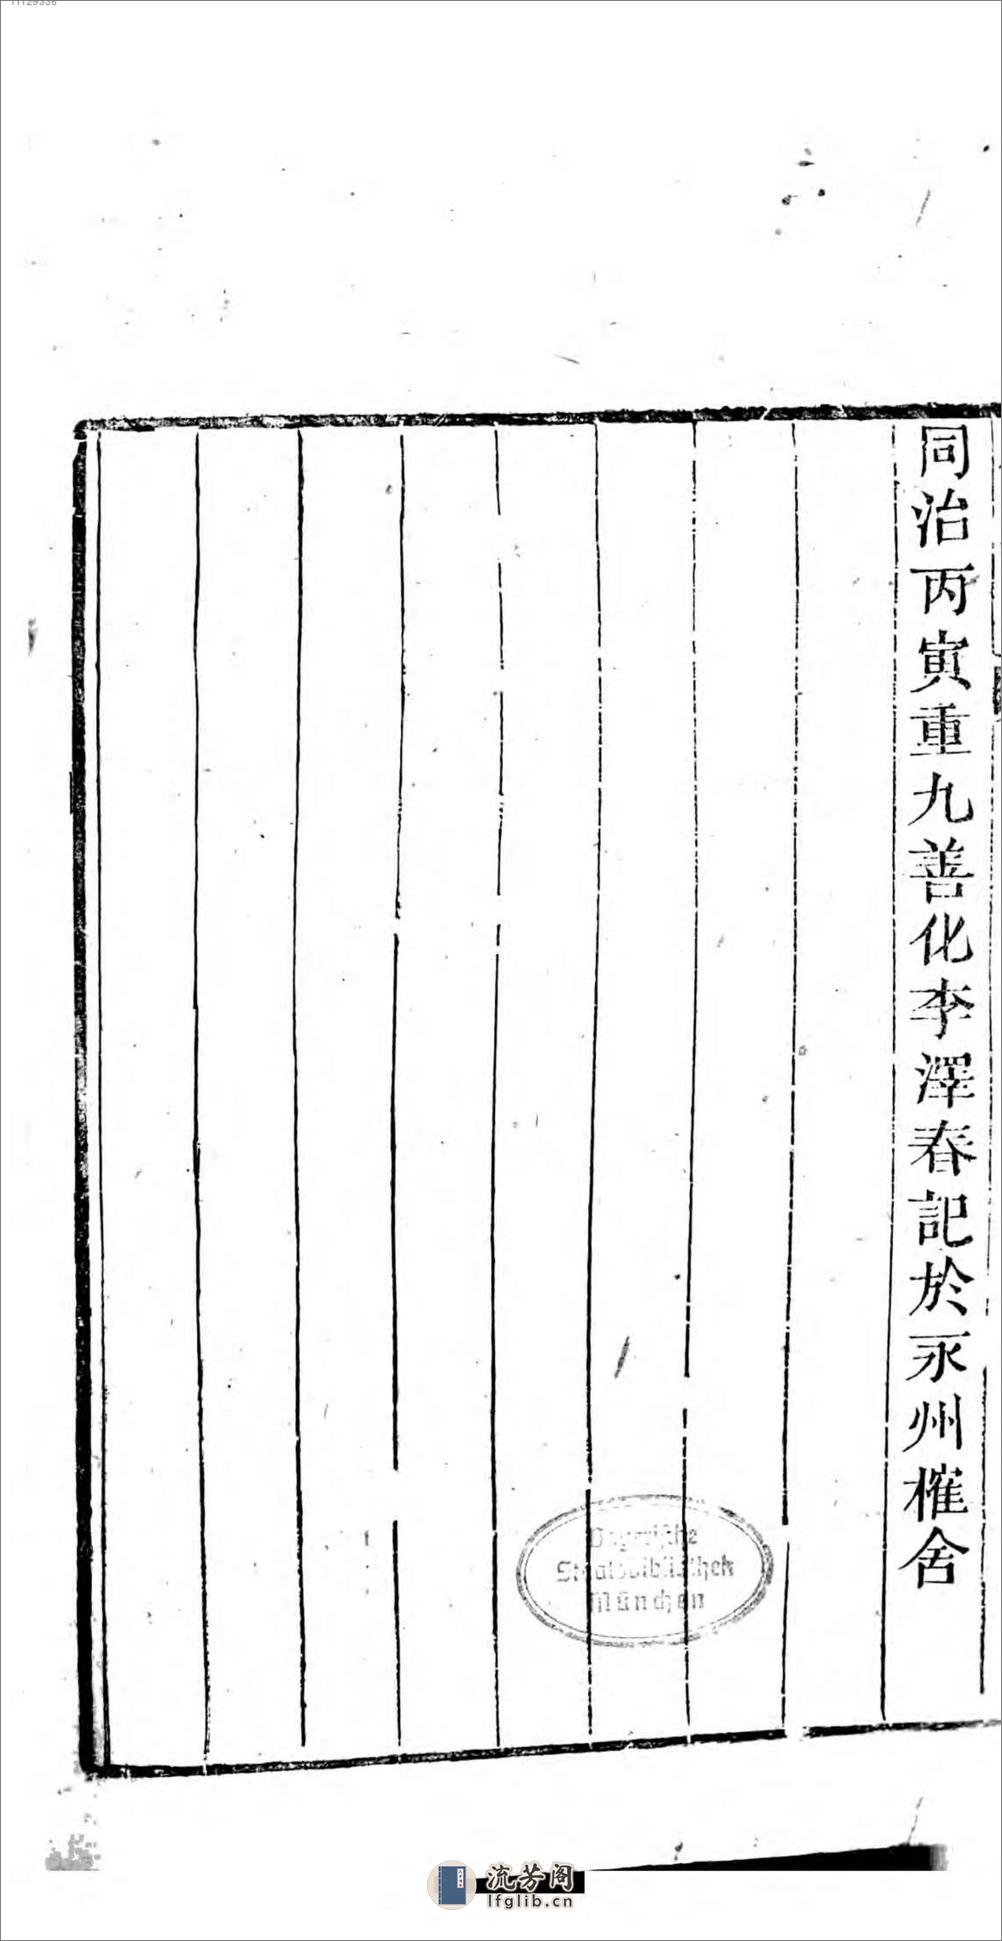 11129336
同治丙寅重九善化李澤春記於永州榷舍
Bayerische
Staatsbibliothek
München
流芳阁
lfglib.cn